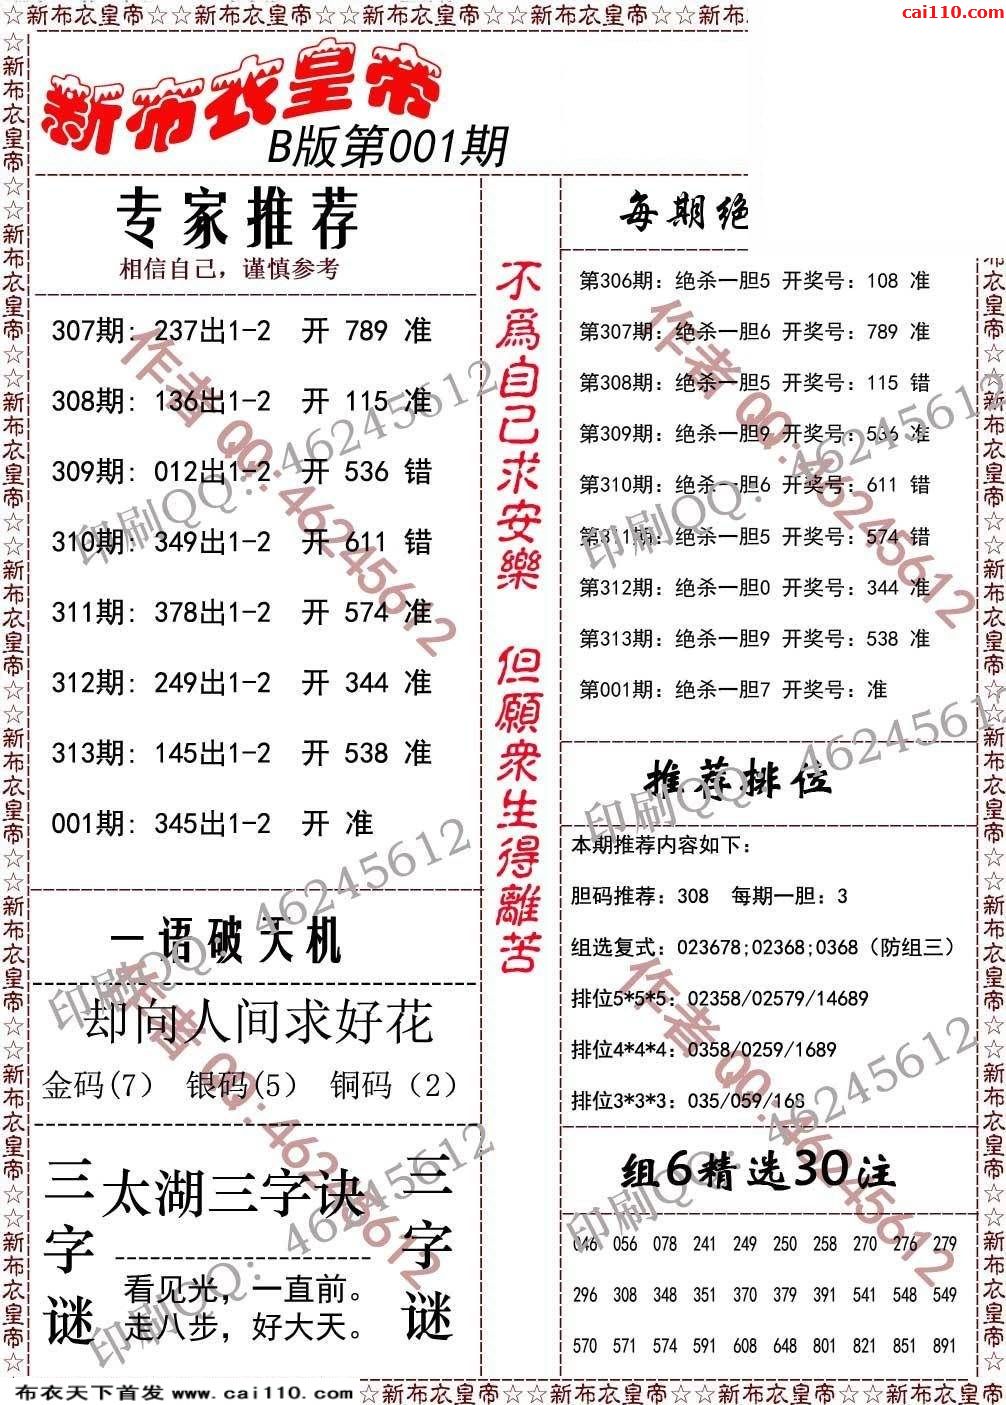 ☆新布衣皇帝☆☆新布衣皇帝☆☆新布衣皇帝☆☆新布衣皇帝☆☆新布
cai110.com
新布衣皇帝
B版第001期
专家推荐
相信自己，谨慎参考
307期: 237出1-2 开 789 准
308期: 136出1-2 开 115 准
309期: 012出1-2 开 536 错
310期: 349出1-2 开 611 错
311期: 378出1-2 开 574 准
312期: 249出1-2 开 344 准
313期: 145出1-2 开 538 准
001期: 345出1-2 开 准
一语破天机
却向人间求好花
金码(7) 银码(5) 铜码（2）
三字谜
太湖三字诀
看见光，一直前。
走八步，好大天。
三字谜
不爲自己求安樂
但願衆生得離苦
每期绝
第306期: 绝杀一胆5 开奖号: 108 准
第307期: 绝杀一胆6 开奖号: 789 准
第308期: 绝杀一胆5 开奖号: 115 错
第309期: 绝杀一胆9 开奖号: 536 准
第310期: 绝杀一胆6 开奖号: 611 错
第311期: 绝杀一胆5 开奖号: 574 错
第312期: 绝杀一胆0 开奖号: 344 准
第313期: 绝杀一胆9 开奖号: 538 准
第001期: 绝杀一胆7 开奖号: 准
推荐排位
本期推荐内容如下:
胆码推荐: 308 每期一胆: 3
组选复式: 023678;02368;0368（防组三）
排位5*5*5: 02358/02579/14689
排位4*4*4: 0358/0259/1689
排位3*3*3: 035/059/168
组6精选30注
046 056 078 241 249 250 258 270 276 279
296 308 348 351 370 379 391 541 548 549
570 571 574 591 608 648 801 821 851 891
作者QQ:46245612
印刷QQ: 46245612
作者QQ:46245612
印刷QQ: 46245612
作者QQ:46245612
印刷QQ: 46245612
作者QQ:46245612
印刷QQ: 46245612
印刷QQ: 46245612
印刷QQ: 46245612
布衣天下首发 www.cai110.com
☆新布衣皇帝☆☆新布衣皇帝☆☆新布衣皇帝☆☆新布衣皇帝☆